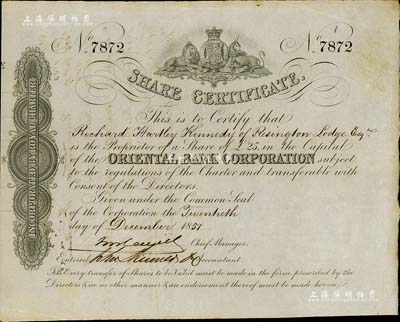 上海阳明拍卖
No. 7872 No. 7872
SHARE CERTIFICATE.
INCORPORATED BY ROYAL CHARTER
This is to Certify that
Richard Hartley Kennedy of Resington Lodge Esqre.
is the Proprietor of a Share of £25, in the Capital
of the ORIENTAL BANK CORPORATION subject
to the regulations of the Charter and transferable with
Consent of the Directors.
Given under the Common Seal
of the Corporation the Twentieth
day of December 1851
Chief Manager.
Entered Accountant.
N.B. Every transfer of Shares to be Valid must be made in the form prescribed by the
Directors & in no other manner & an endorsement thereof must be made hereon.
上海阳明拍卖